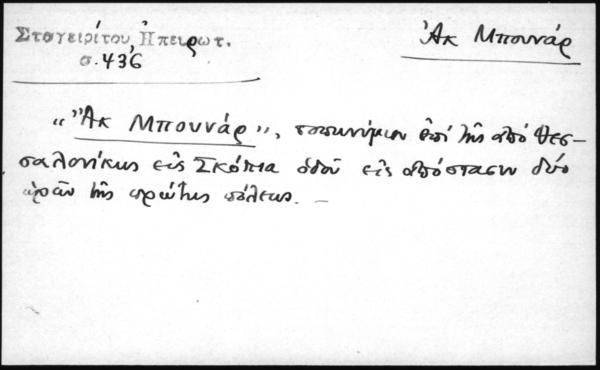 Σταγειρίτου Ἠπειρωτ.
σ. 436
Ἀκ Μπουνάρ
"Ἀκ Μπουνάρ", τοπωνύμιον ἐπί τῆς ἀπό Θεσ-
σαλονίκης εἰς Σκόπια ὁδοῦ εἰς ἀπόστασιν δύο
ὡρῶν τῆς πρώτης πόλεως. –